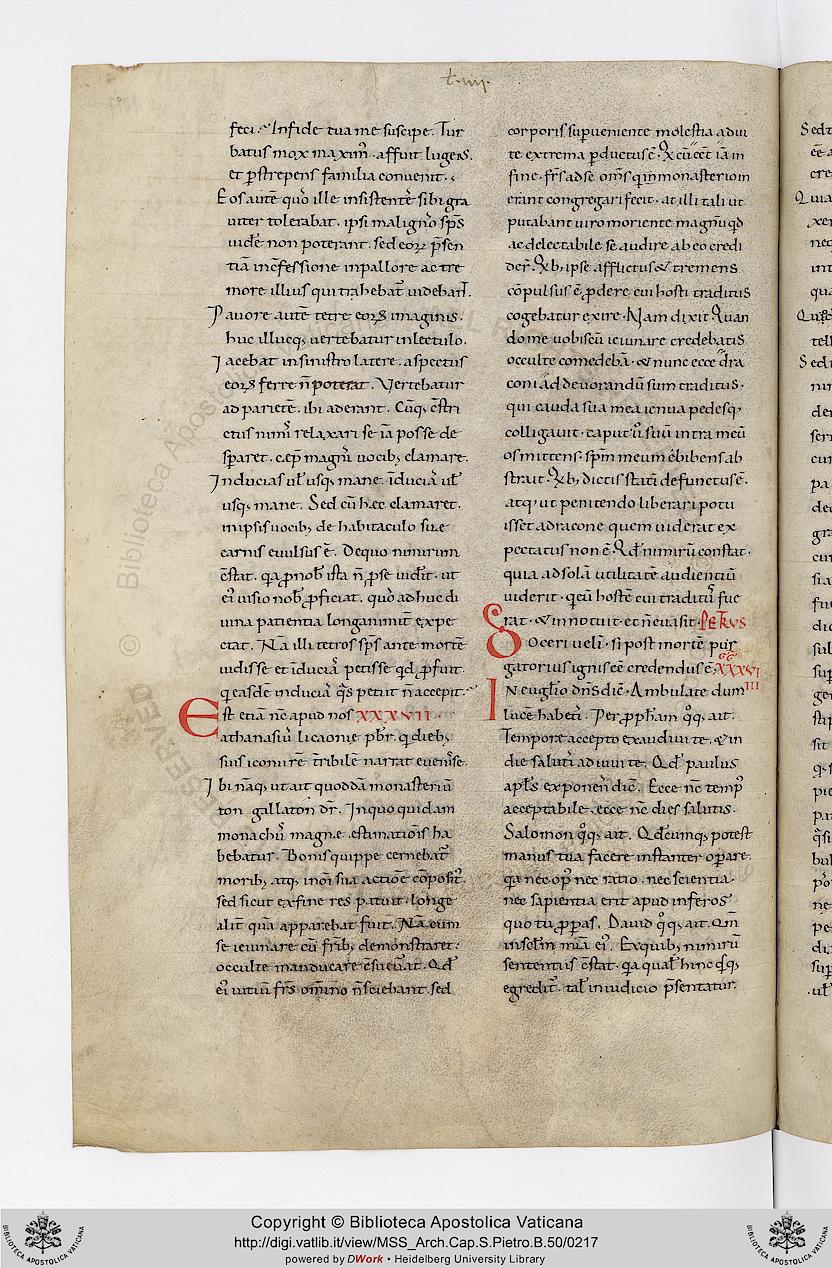 t. iiii.
feci. In fide tua me suscipe. Tur
batus mox maxim̄. affuit lugens.
et ꝑstrepens familia convenit.
Eos autē quo ille insistentē sibi gra
viter tolerabat. ipsi maligno sp̄s
vidē non poterant. sed eorꝝ p̄sen
tiā in c̄fessione in pallore ac tre
more illius qui trahebat̄ videbant̄.
Pavore autē tetre eorꝝ imaginis.
huc illucq; vertebatur in lectulo.
Iacebat in sinistro latere. aspectus
eorꝝ ferre n̄ poterat. Vertebatur
ad parietē. ibi aderant. Cūq; c̄stri
ctus nimi relaxari se iā posse de
sꝑaret. cep̄ magn̄ vocib; clamare.
Inducias ul̄ usq; mane. īducia ul̄
usq; mane. Sed cū hec clamaret.
in ipsis vocib; de habitaculo sue
carnis evulsus ē. De quo nimirum
c̄stat. qa ꝓ nob̄ ista n̄ ꝓ se vidit. ut
ei visio nob̄ ꝓficiat. quo adhuc di
vina patientia longanimit̄ expe
ctat. Nā illi tetros sp̄s ante mortē
vidisse et īducia petisse qd ꝓfuit.
q easdē inducia q̄s petiit n̄ accepit.
Est etiā nc̄ apud nos XXXVII.
athanasiu licaonie pb̄r. q dieb;
suis iconii rē tribilē narrat evenisse.
Ibi naq; ut ait quoddā monasteriū
ton gallaton dr̄. In quo quidam
monachu magne estimationis ha
bebatur. Bonis quippe cernebat̄
morib; atq; in om̄i sua actione cōposit.
sed sicut ex fine res patuit. longe
alit̄ qua apparebat fuit. Nā cum
se ieiunare cū fr̄ib; demonstraret.
occulte manducare c̄suevat. Qd̄
ei vitiū fr̄s omnino n̄ sciebant. sed
corporis supveniente molestia ad vi
te extrema ꝑductus ē. Qi cū cēt iā in
fine. fr̄s ad se om̄s q in monasterio in
erant congregari fecit. at illi tali ut
putabant viro moriente magnū qd
ac delectabile se audire ab eo credi
der. Qb; ipse afflictus & tremens
cōpulsus ē ꝓdere cui hosti traditus
cogebatur exire. Nam dixit Quan
do me vobiscū ieiunare credebatis
occulte comedebā. & nunc ecce dra
coni ad devorandū sum traditus.
qui cauda sua mea genua pedesq;
colligavit. caput u̇ suū intra meū
os mittens. sp̄m meum ebibens ab
strait. Qb; dictis statī defunctus ē.
atq; ut penitendo liberari potu
isset a dracone quem viderat ex
pectatus non ē. Qd̄ nimirū constat.
quia ad solā utilitatē audientiū
viderit. q eū hostē cui traditu fue
rat. & innotuit. et n̄ evasit. PETRVS
Doceri veli. si post mortē pur
gatorius ignis eē credendus ē. XXXVI
In evḡlio dn̄s dic̄. Ambulate dum III
lucē habeti. Per ꝓph̄am q̊q; ait.
Tempore accepto exaudivi te. & in
die saluti adiuvi te. Qd̄ paulus
apl̄s exponen̄ dic̄. Ecce nc̄ temp̄
acceptabile. ecce nc̄ dies salutis.
Salomon q̊q; ait. Qd̄cumq; potest
manus tua facere instanter oꝑare.
qa nec op̄ nec ratio. nec scientia.
nec sapientia erit apud inferos
quo tu ꝓꝑas. David q̊q; ait. Qm̄
in sclm̄ mīa ei. Ex quib; nimirū
sententiis c̄stat. qa qual̄ hinc q̄sq;
egredit̄. tal̄ in iudicio p̄sentatur.
Copyright © Biblioteca Apostolica Vaticana
http://digi.vatlib.it/view/MSS_Arch.Cap.S.Pietro.B.50/0217
powered by DWork • Heidelberg University Library